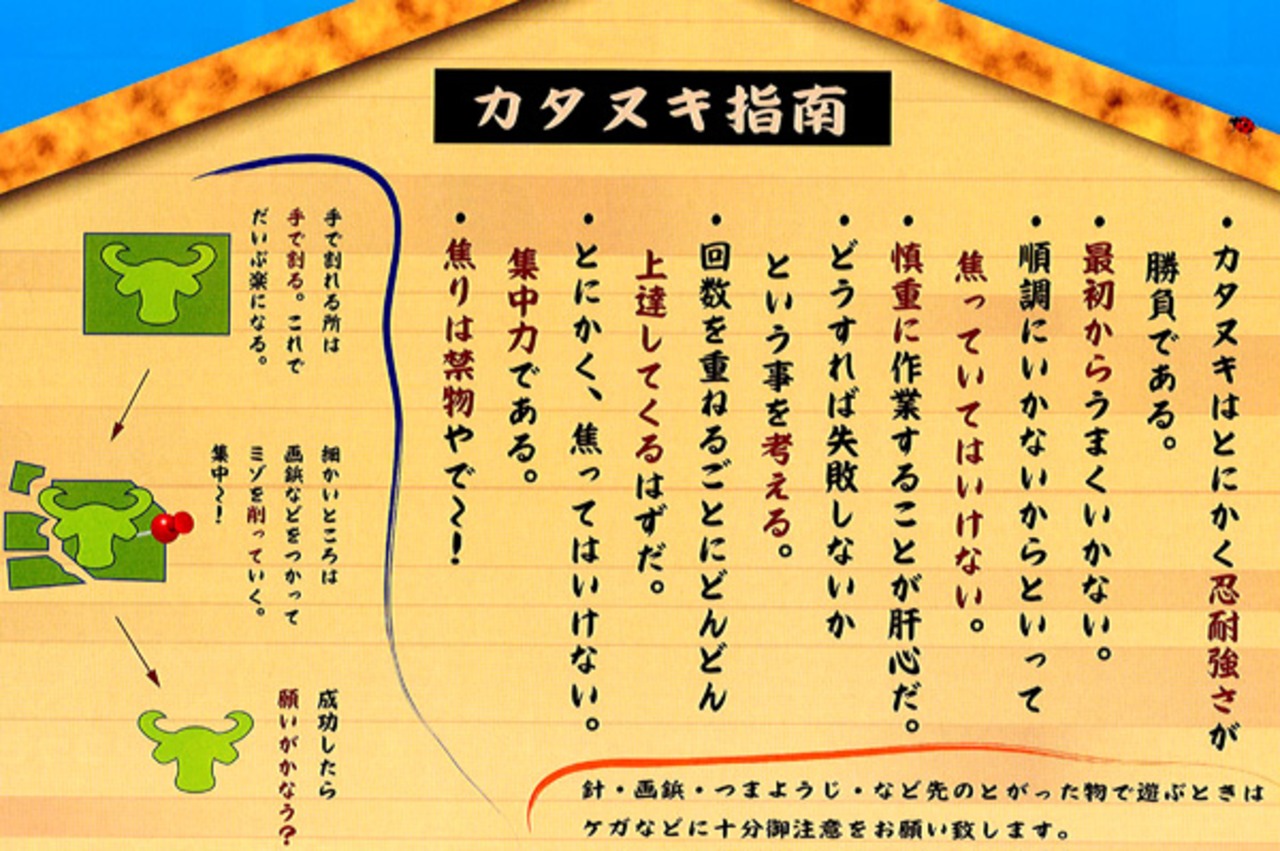 カタヌキ指南
・カタヌキはとにかく忍耐強さが
勝負である。
・最初からうまくいかない。
・順調にいかないからといって
焦っていてはいけない。
・慎重に作業することが肝心だ。
・どうすれば失敗しないか
という事を考える。
・回数を重ねるごとにどんどん
上達してくるはずだ。
・とにかく、焦ってはいけない。
集中力である。
・焦りは禁物やで～!
手で割れる所は
手で割る。これで
だいぶ楽になる。
細かいところは
画鋲などをつかって
ミゾを削っていく。
集中～!
成功したら
願いがかなう?
針・画鋲・つまようじ・など先のとがった物で遊ぶときは
ケガなどに十分御注意をお願い致します。